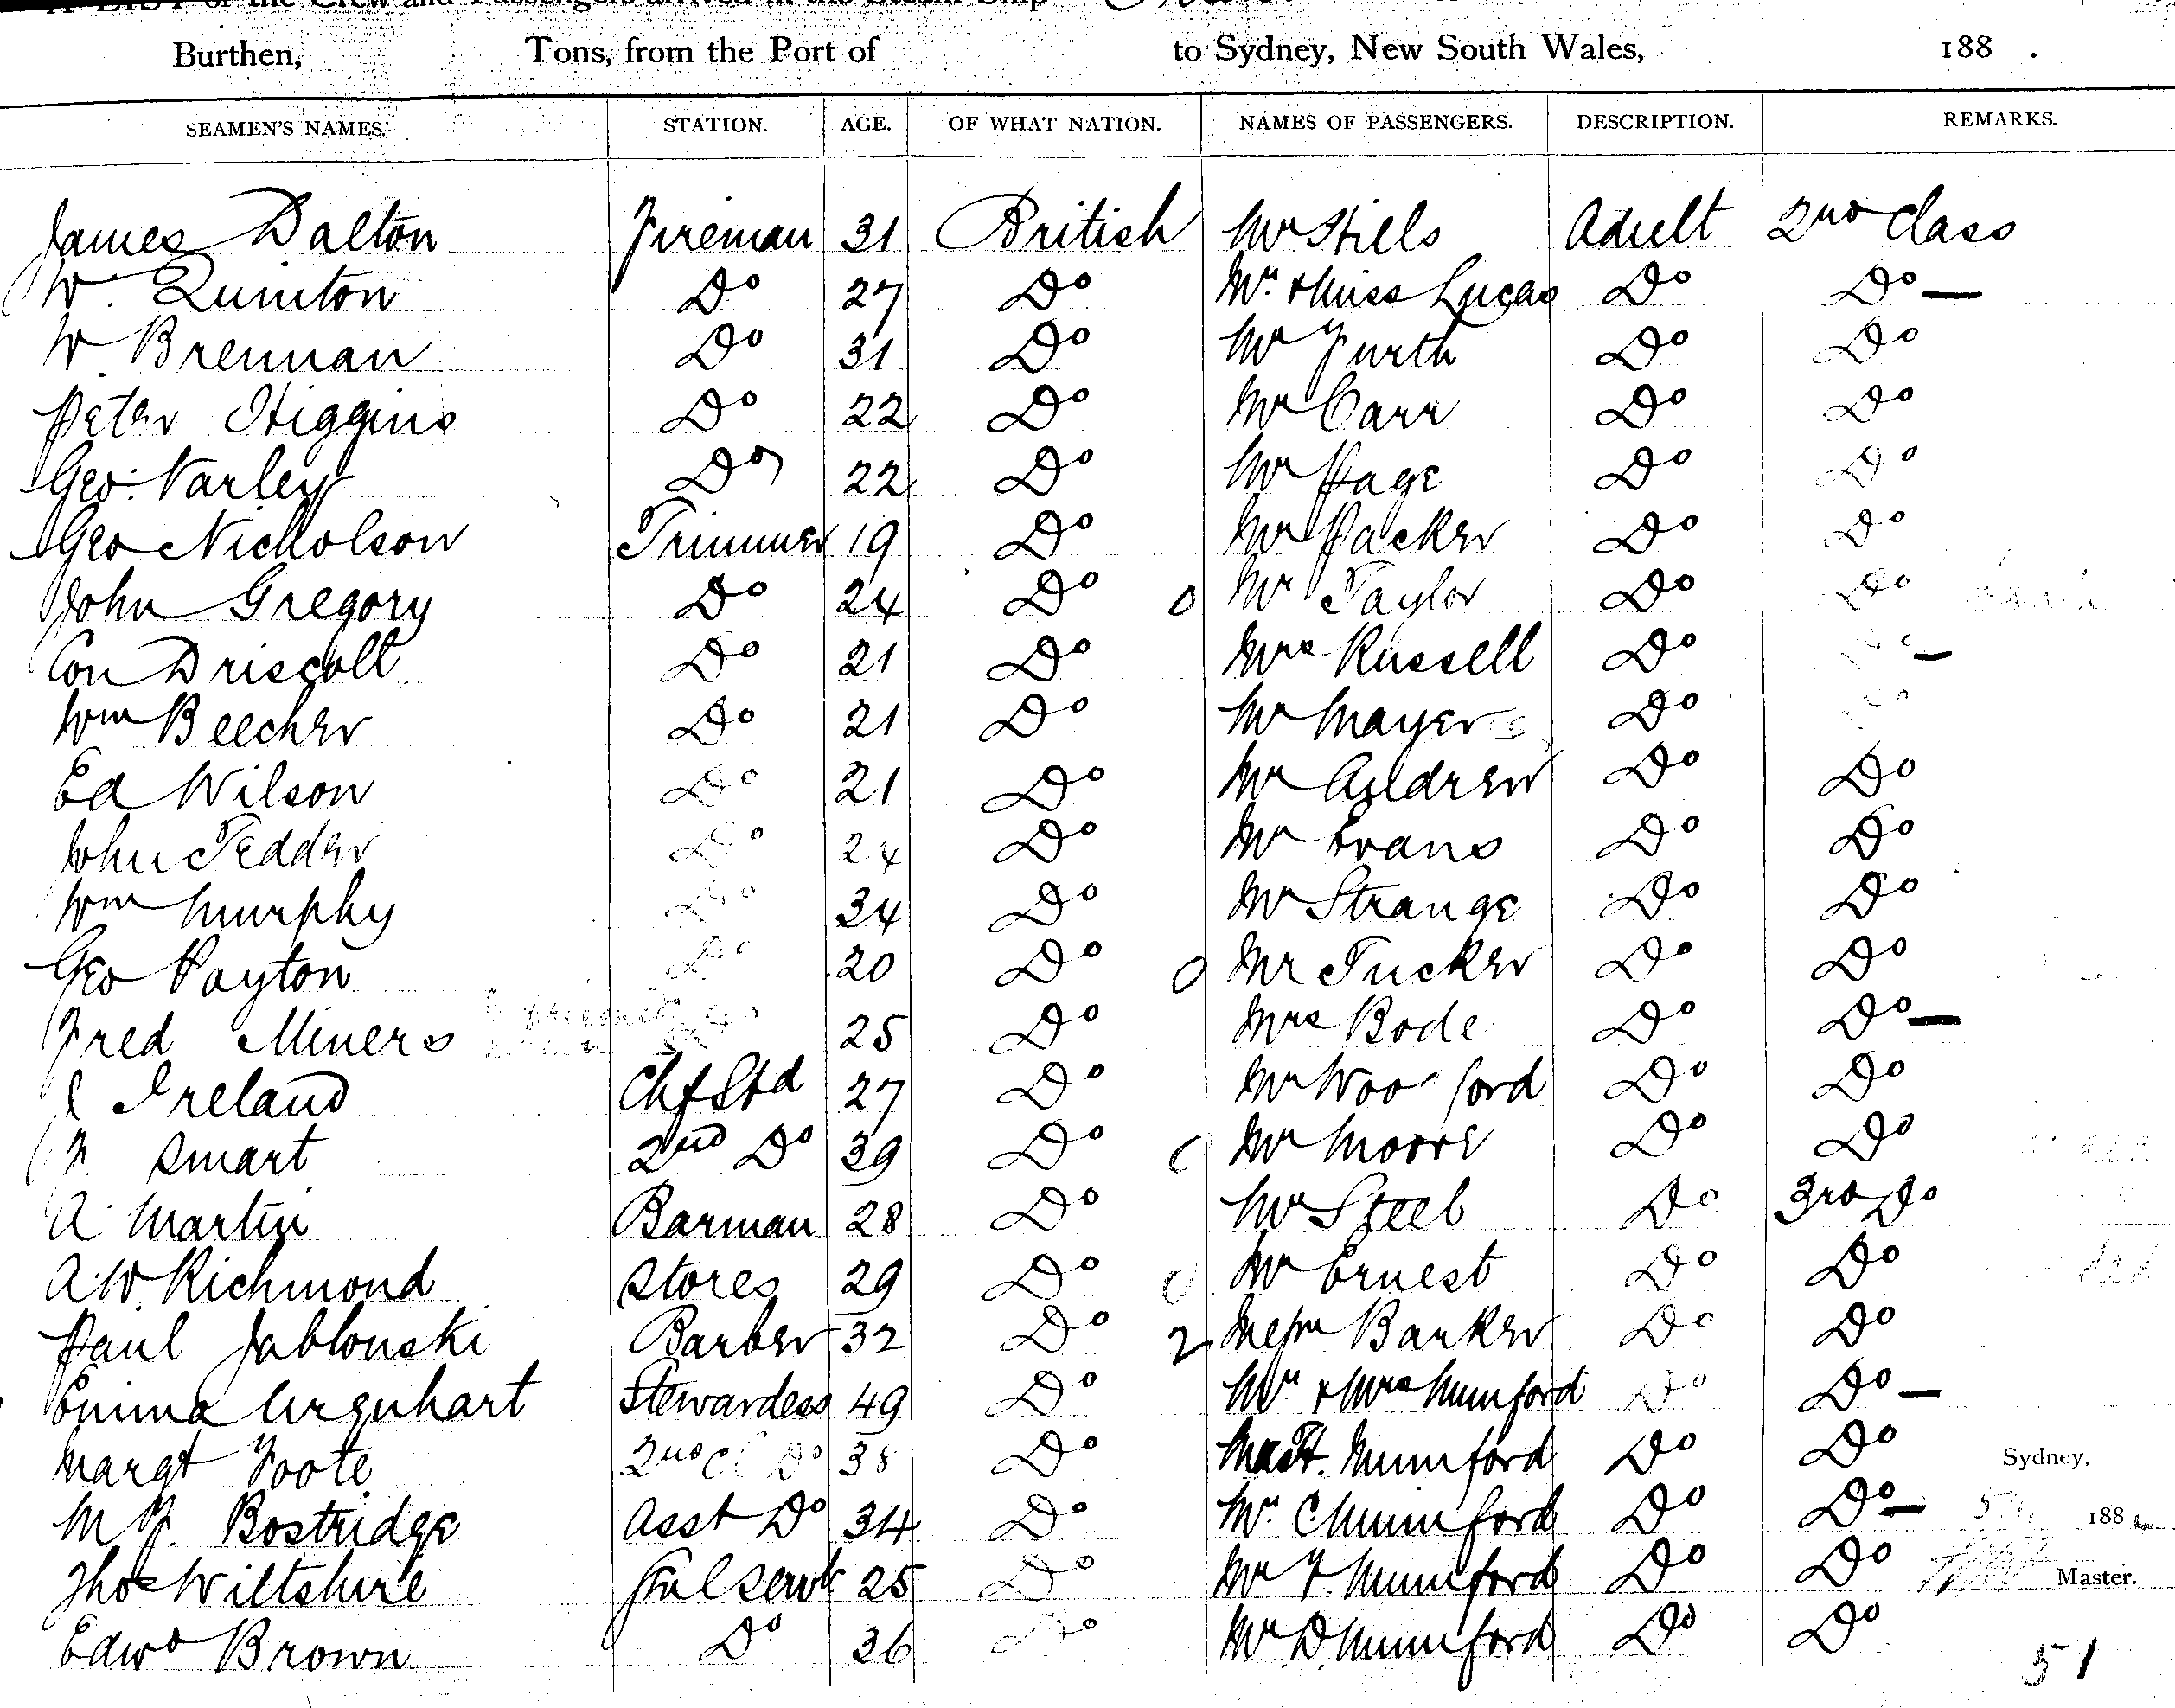 A LIST of the Crew and Passengers arrived in the Steam Ship
Burthen, Tons, from the Port of to Sydney, New South Wales, 188 .
SEAMEN'S NAMES. STATION. AGE. OF WHAT NATION. NAMES OF PASSENGERS. DESCRIPTION. REMARKS.
James Dalton Fireman 31 British Mr Hills Adult 2nd Class
W. Quinton Do 27 Do Mr. & Miss Lucas Do Do —
W. Brennan Do 31 Do Mr Furth Do Do
Peter Higgins Do 22 Do Mr Carr Do Do
Geo. Varley Do 22 Do Mr Page Do Do
Geo Nicholson Trimmer 19 Do Mr Packer Do Do
John Gregory Do 24 Do Mr Taylor Do Do
Con Driscoll Do 21 Do Mrs Russell Do Do —
Wm Beecher Do 21 Do Mr Mayer Do Do
Ed Wilson Do 21 Do Mr Andrew Do Do
John Tedder Do 24 Do Mr Evans Do Do
Wm Murphy Do 34 Do Mr Strange Do Do
Geo Payton Do 20 Do Mr Tucker Do Do
Fred Miners Do 25 Do Mrs Bode Do Do —
Ireland Chf Std 27 Do Mr Do Do
F. Smart 2nd Do 39 Do Mr Moore Do Do
A. Martin Barman 28 Do Mr Steel Do 3rd Do
A. W. Richmond Stores 29 Do Mr Ernest Do Do
Paul Jablonski Barber 32 Do 2 Messrs Barker Do Do
Emma Urquhart Stewardess 49 Do Mr & Mrs Mumford Do Do —
Margt Foote 2nd Cl Do 38 Do Mast. Mumford Do Do Sydney,
M F. Bostridge Asst Do 34 Do Mr. C Mumford Do Do — 188
Thos Wiltshire Gnl Servt 25 Do Mr F. Mumford Do Do Master.
Edwd Brown Do 36 Do Mr D. Mumford Do Do
51